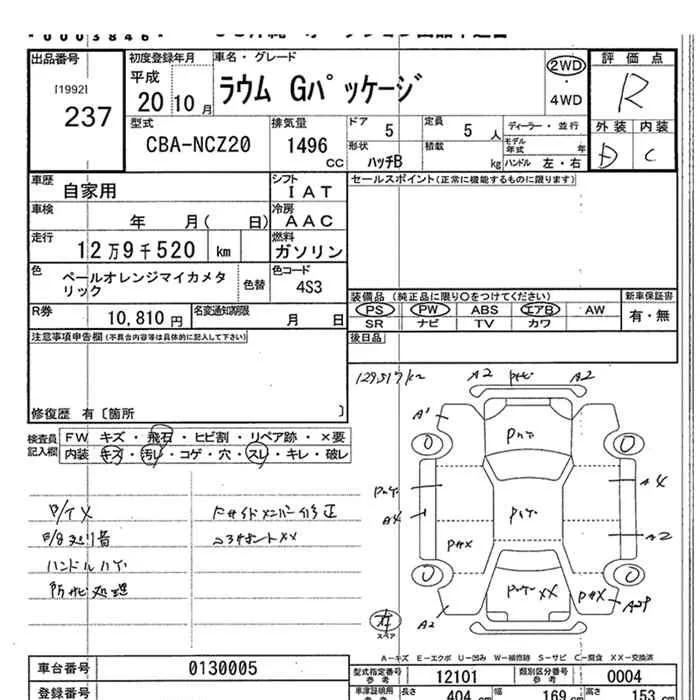 *0003846*
出品番号
[1992]
237
初度登録年月
平成
20 10 月
車名・グレード
ラウム Gパッケージ
2WD
・
4WD
評価点
R
外装 内装
D C
型式
CBA-NCZ20
排気量
1496
CC
ドア 5
定員 5 人
形状 ハッチB
積載 kg
ディーラー・並行
モデル年式 年
ハンドル 左・右
車歴 自家用
シフト IAT
セールスポイント(正常に機能するものに限ります)
車検 年 月( 日)
冷房 AAC
走行 12万9千520 km
燃料 ガソリン
色 ペールオレンジマイカメタリック
色替
色コード 4S3
装備品(純正品に限り○をつけてください)
新車保証書
PS PW ABS エアB AW
有・無
SR ナビ TV カワ
R券 10,810 円
名変通知期限 月 日
後日品
注意事項申告欄(不具合内容等は具体的に記入して下さい)
修復歴 有〔箇所 〕
検査員記入欄
FW キズ・飛石・ヒビ割・リペア跡・×要
内装 キズ・汚レ・コゲ・穴・スレ・キレ・破レ
129517km
A2 A2
A1
A4
A4
A2
A2
ハンドルハゲ
防サビ処理
スペア
A-キズ E-エクボ U-凹み W-補修跡 S-サビ C-腐食 XX-交換済
車台番号 0130005
型式指定番号 参考 12101
類別区分番号 参考 0004
登録番号
車体証明用 参考
長さ 404 cm
幅 169 cm
高さ 153 cm